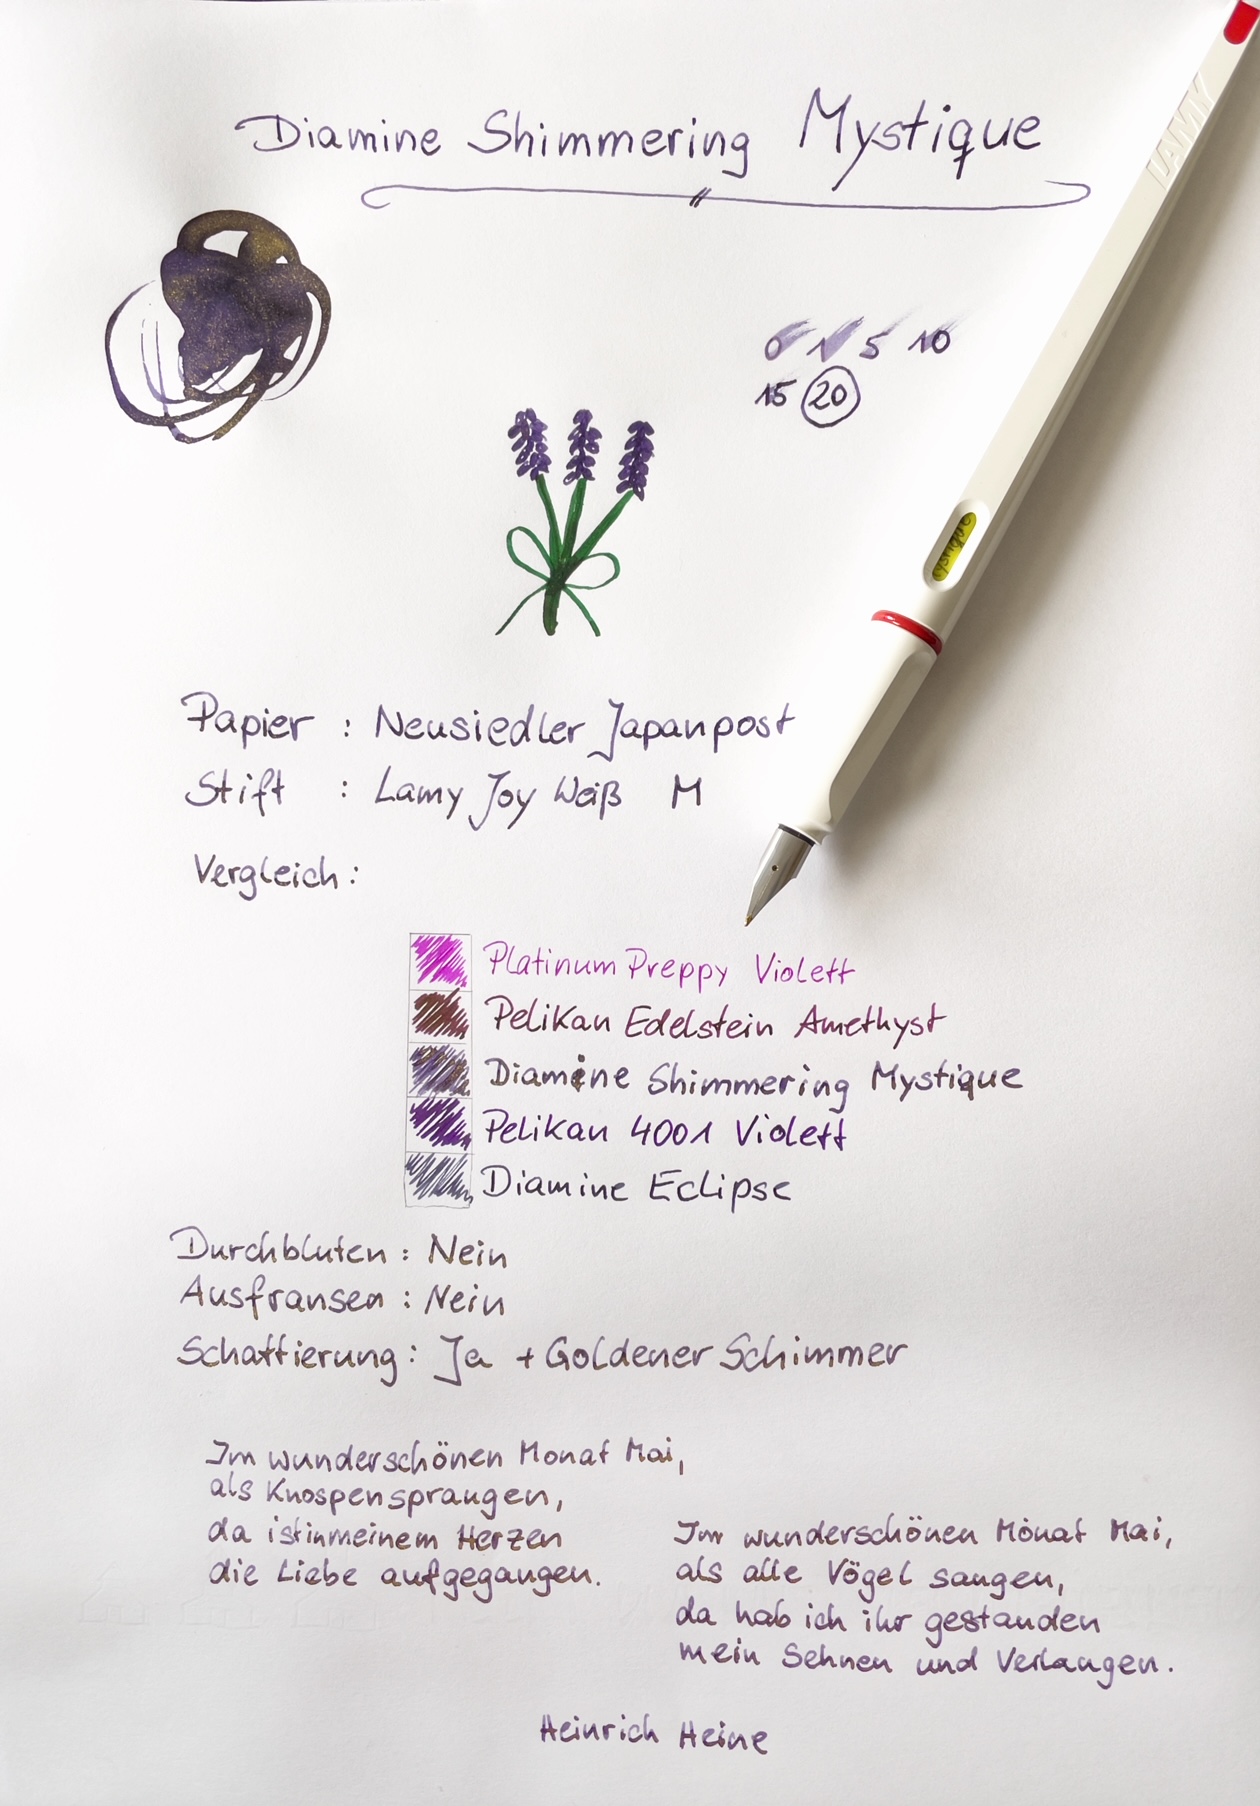 Diamine Shimmering Mystique
LAMY
0 1 5 10
15 20
ystique
Papier : Neusiedler Japanpost
Stift : Lamy Joy Weiß M
Vergleich:
Platinum Preppy Violett
Pelikan Edelstein Amethyst
Diamine Shimmering Mystique
Pelikan 4001 Violett
Diamine Eclipse
Durchbluten : Nein
Ausfransen : Nein
Schattierung : Ja + Goldener Schimmer
Im wunderschönen Monat Mai,
als Knospen sprangen,
da ist in meinem Herzen
die Liebe aufgegangen.
Im wunderschönen Monat Mai,
als alle Vögel sangen,
da hab ich ihr gestanden
mein Sehnen und Verlangen.
Heinrich Heine